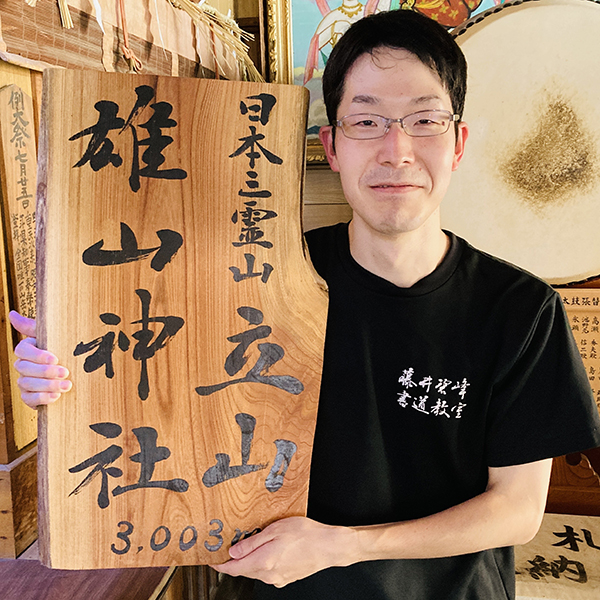 日本三霊山
立山
雄山神社
3,003m
藤井碧峰
書道教室
例大祭 七月廿五日
札
納